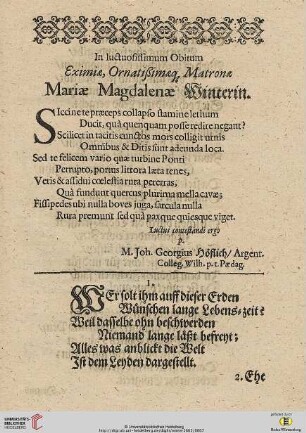 In luctuosissimum Obitum
Eximiæ, Ornatißimæq́, Matronæ
Mariæ Magdalenæ Winterin.
SIccine te præceps collapso stamine lethum
Ducit, quà quenquam posse redire negant?
Scilicet in tacitis cunctos mors colligit
Omnibus & Ditis sunt adeunda loca.
Sed te felicem vario quæ turbine Ponti
Perrupto, portus littora læta tenes,
Veris & assidui cœlestia rura pererras,
Quà fundunt quercus plurima mella cavæ;
Fissipedes ubi nulla boves juga, sarcula nulla
Rura premunt sed quà pax que quiesque viget.
Luctui contestandi ergo
p.
M. Joh. Georgius Höflich/ Argent.
Colleg. Wilh. p. t. Pædag.
1.
WEr solt ihm auff dieser Erden
Wünschen lange Lebens-zeit?
Weil dasselbe ohn beschwerden
Niemand lange läßt befreyt;
Alles was anblickt die Welt
Ist dem Leyden dargestellt.
2. Ehe
UNIVERSITÄTS-
BIBLIOTHEK
HEIDELBERG
© Universitätsbibliothek Heidelberg
gefördert durch
Baden-Württemberg